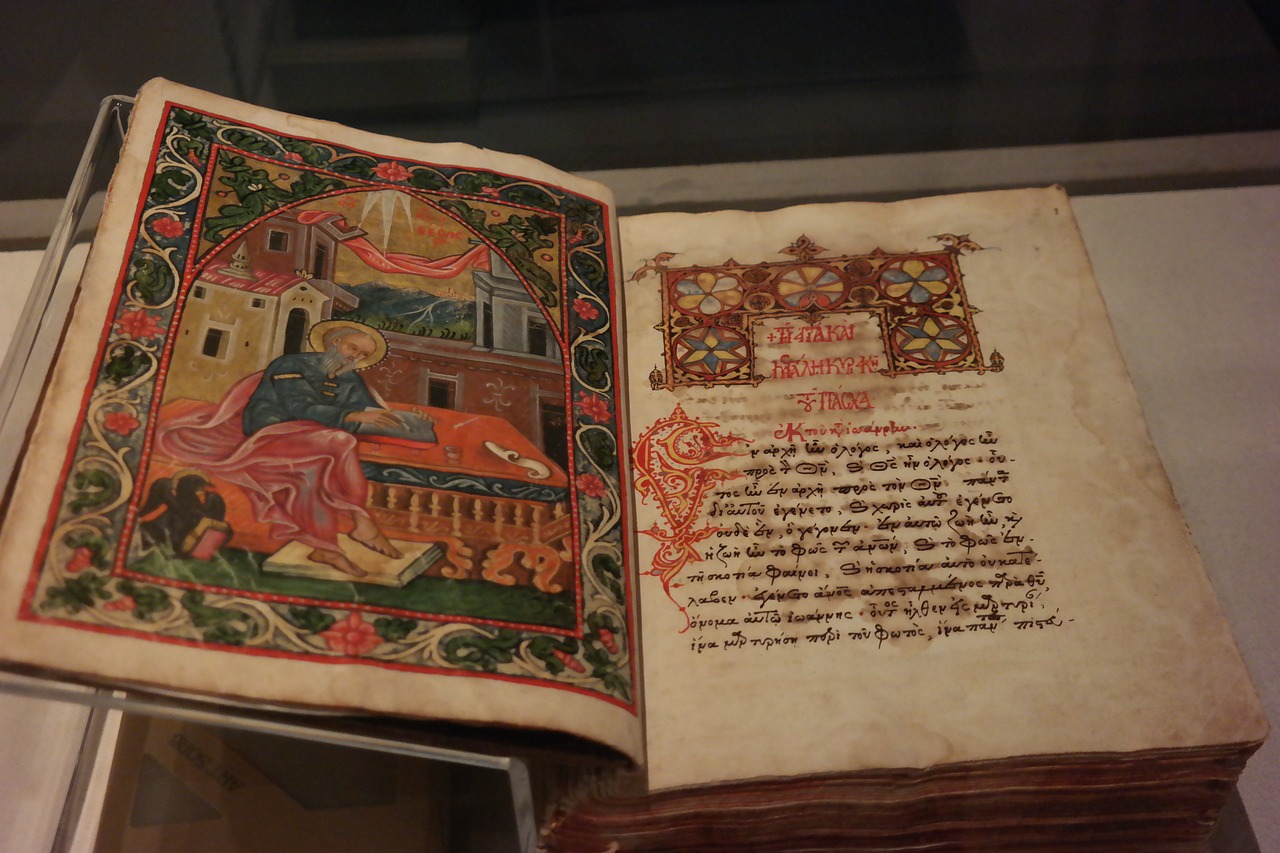 + τῇ ἁγίᾳ καὶ
μεγάλῃ κυριακῇ
τοῦ πάσχα
ἐκ τοῦ κατὰ ἰωάννην.
ἐν ἀρχῇ ἦν ὁ λόγος, καὶ ὁ λόγος ἦν
πρὸς τὸν θν, καὶ θς ἦν ὁ λόγος· οὗ-
τος ἦν ἐν ἀρχῇ πρὸς τὸν θν· πάντα
δι' αὐτοῦ ἐγένετο, καὶ χωρὶς αὐτοῦ ἐγένετο
οὐδὲ ἓν, ὃ γέγονεν· ἐν αὐτῷ ζωὴ ἦν, καὶ
ἡ ζωὴ ἦν τὸ φῶς τῶν ἀνων, καὶ τὸ φῶς ἐν
τῇ σκοτίᾳ φαίνει, καὶ ἡ σκοτία αὐτὸ οὐ κατέ-
λαβεν· ἐγένετο ἄνος ἀπεσταλμένος παρὰ θυ,
ὄνομα αὐτῷ ἰωάννης· οὗτος ἦλθεν εἰς μαρτυρίαν,
ἵνα μαρτυρήσῃ περὶ τοῦ φωτὸς, ἵνα πάντες πιστεύ-